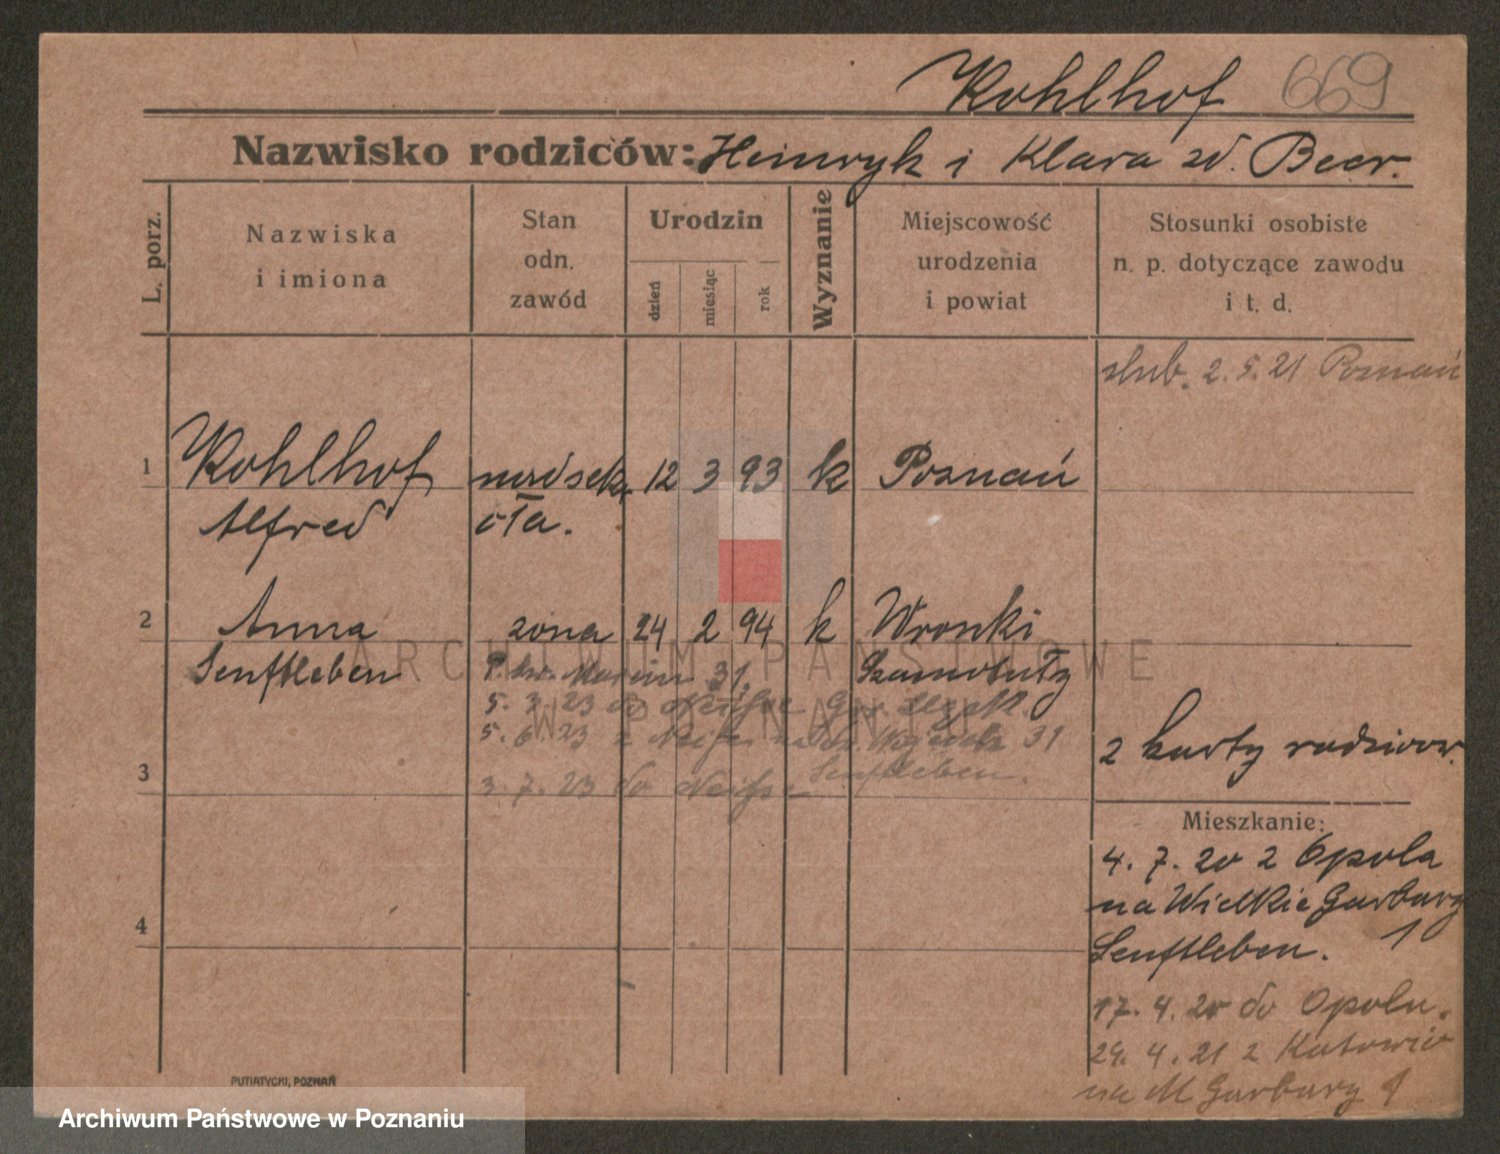 Kohlhof 669
Nazwisko rodziców: Heinryk i Klara zd. Beer.
L. porz.
Nazwiska
i imiona
Stan
odn.
zawód
Urodzin
dzień
miesiąc
rok
Wyznanie
Miejscowość
urodzenia
i powiat
Stosunki osobiste
n. p. dotyczące zawodu
i t. d.
ślub. 2.5.21 Poznań
1 Kohlhof 12 3 93 k Poznań
Alfred
2 Anna żona 24 2 94 k Wronki
Senftleben Marcin 31 Szamotuły
5. 3. 23 do Neisse
5. 6. 23 z Neisse 31
Senftleben.
3. 7. 23 do Neisse
2 karty rodzicow.
3
Mieszkanie:
4. 7. 20 z Opola
na Wielkie Garbary
Senftleben. 1
4
17. 4. 20 do Opola.
29. 4. 21 z Katowic
na M Garbary 1
PUTIATYCKI, POZNAŃ
ARCHIWUM PAŃSTWOWE
W POZNANIU
Archiwum Państwowe w Poznaniu